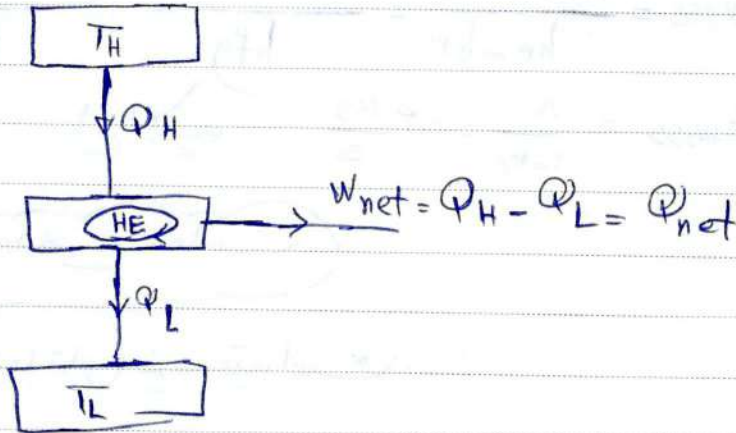 T_H
Q_H
HE
W_net = Q_H - Q_L = Q_net
Q_L
T_L